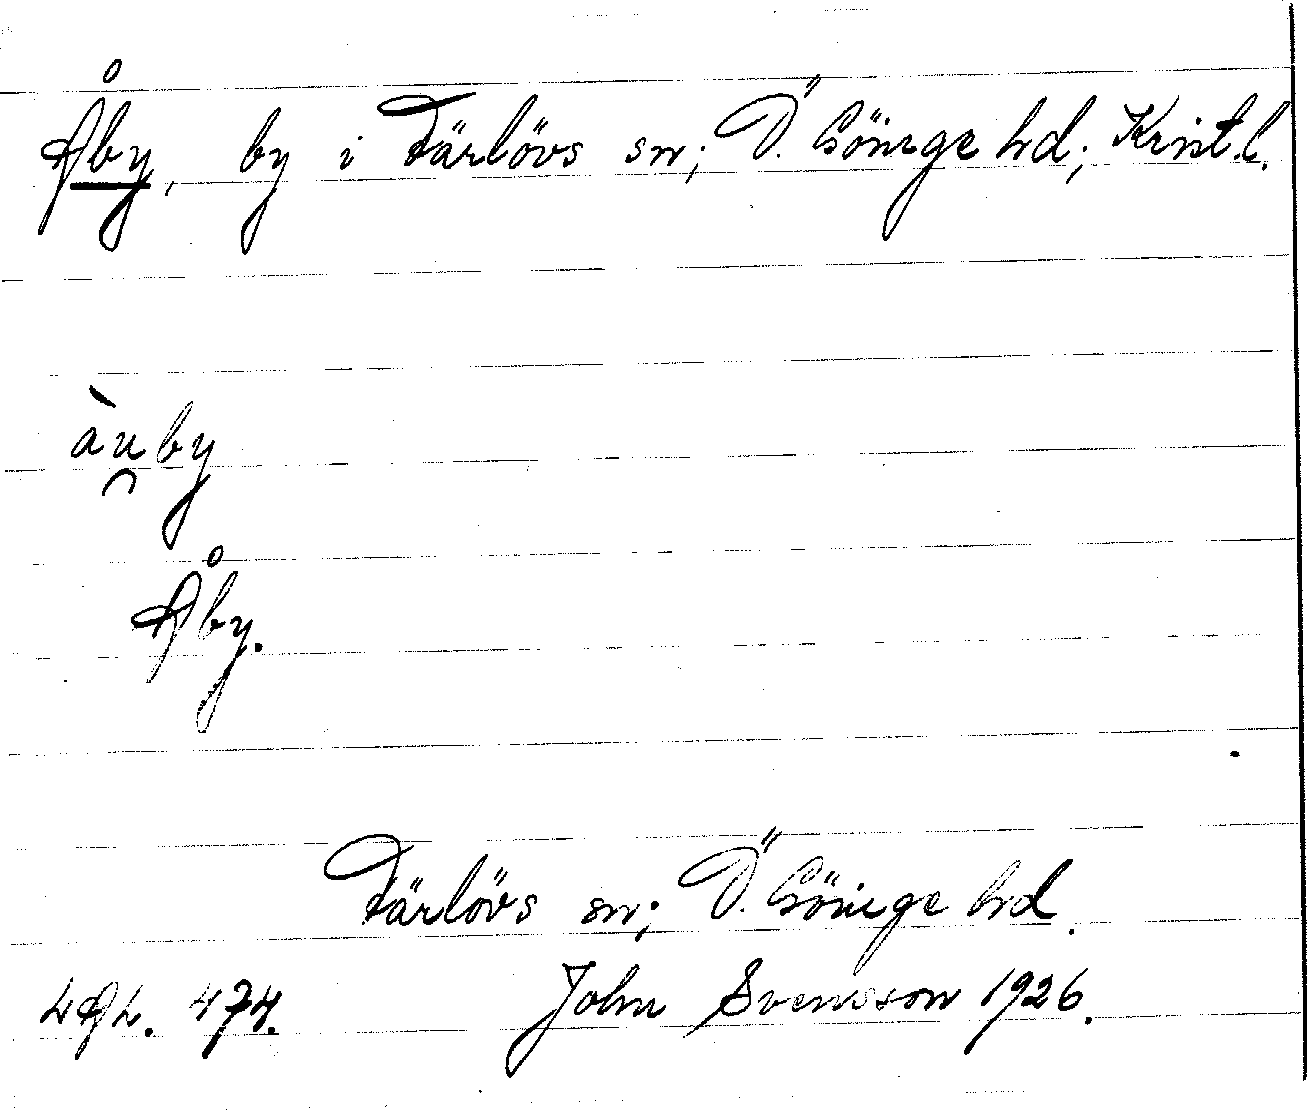 Åby, by i Färlövs sn; Ö. Göinge hd; Krist.l.
àu̯by
Åby.
Färlövs sn; Ö. Göinge hd.
LAL. 474. John Svensson 1926.